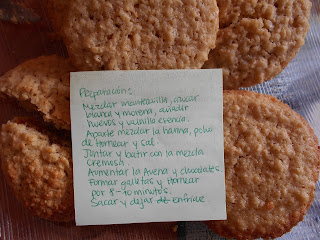 Preparación:
Mezclar mantequilla, azucar
blanca y morena, añadir
huevos y vainilla esencia.
Aparte mezclar la harina, polvo
de hornear y sal
Juntar y batir con la mezcla
cremosa.
Aumentar la avena y chocolates
Formar galletas y Hornear
por 8-10 minutos.
Sacar y dejar de enfriar